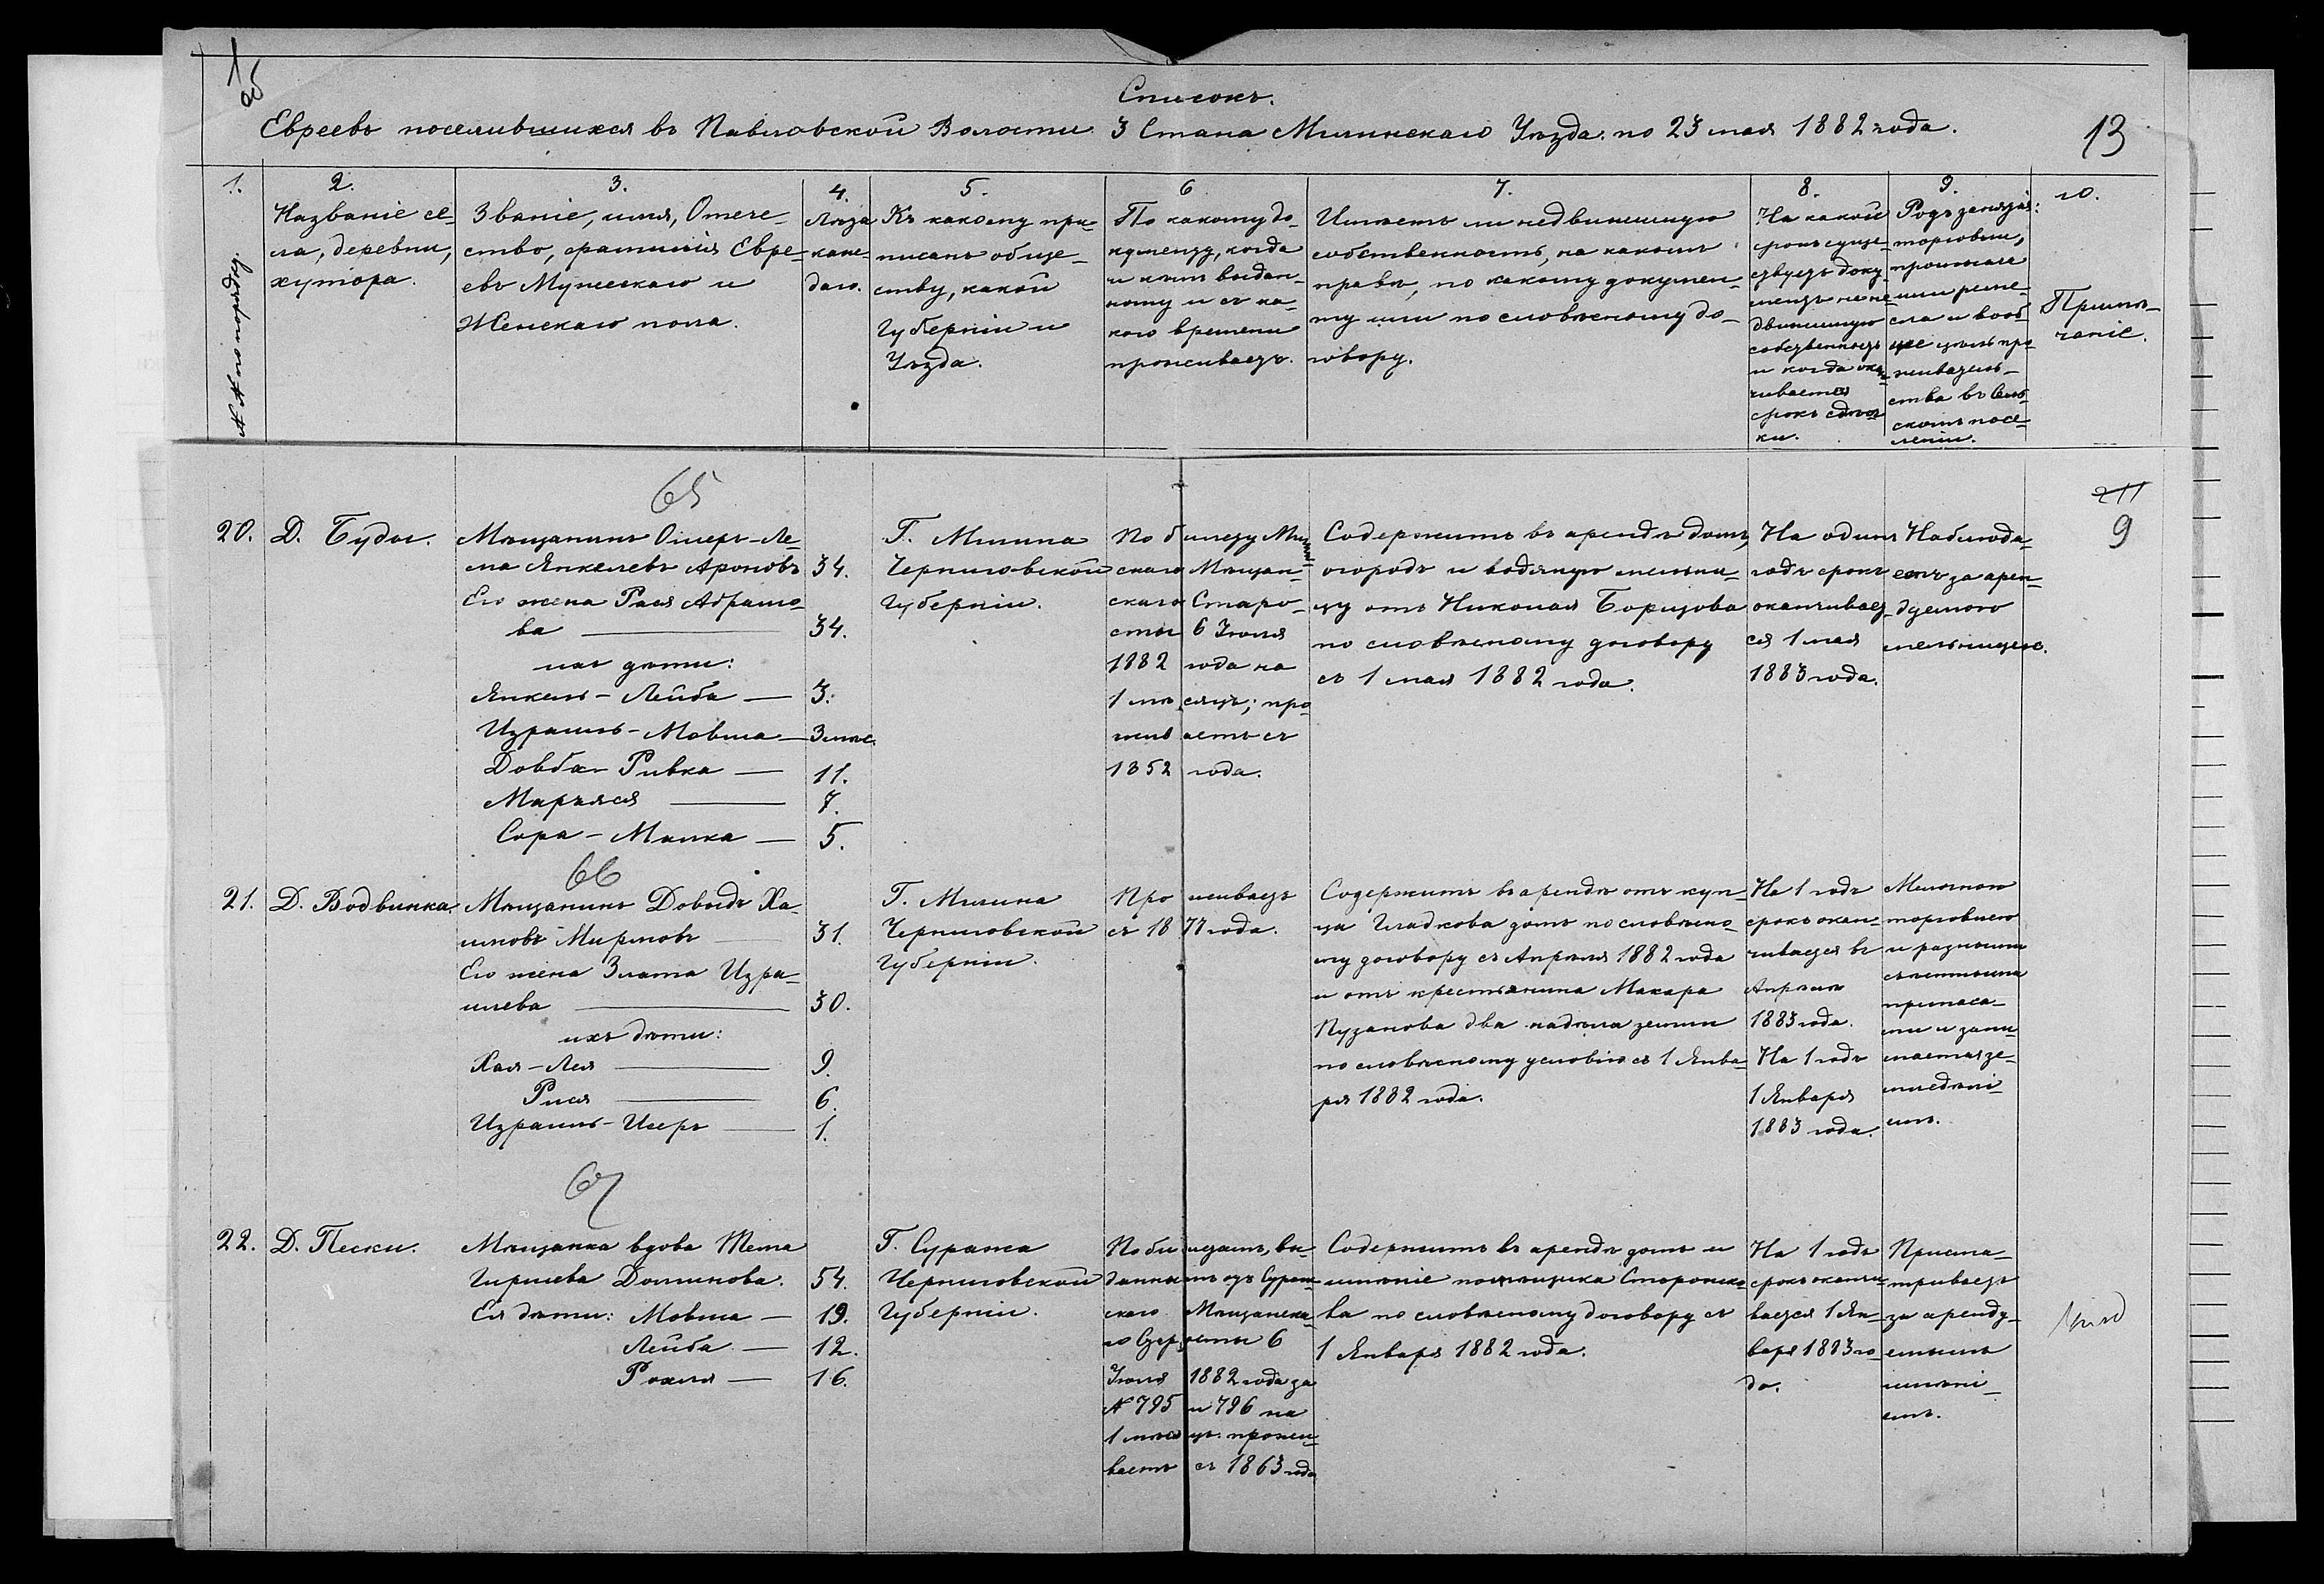 Списокъ.
Евреевъ поселившихся въ Павловской Волости 3 Стана Мглинскаго Уѣзда по 23 мая 1882 года.
13
1.
№ № по порядку.
2.
Названіе се-
ла, деревни,
хутора.
3.
Званіе, имя, Отече-
ство, фамилія Евре-
евъ Мужескаго и
Женскаго пола.
4.
Лѣта
каж-
даго.
5.
Къ какому при-
писанъ обще-
ству, какой
Губерніи и
Уѣзда.
6
По какому до-
кументу, когда
и кѣмъ выдан-
ному и съ ка-
кого времени
проживаетъ.
7.
Имѣетъ ли недвижимую
собственность, на какомъ
правѣ, по какому докумен-
ту или по словесному до-
говору.
8.
На какой
срокъ суще-
ствуетъ доку-
ментъ на не-
движимую
собственность
и когда окан-
чивается
срокъ сдѣл-
ки.
9.
Родъ занятія:
торговли,
промысла
или реме-
сла и вооб-
ще цѣль про-
живатель-
ства въ Сель-
скомъ посе-
леніи.
10.
Примѣ-
чаніе.
65
20.
Д. Буды.
Мѣщанинъ Ошеръ-Ле-
ма Янкелевъ Ароновъ 34.
Его жена Рася Абрамо-
ва — 34.
ихъ дѣти:
Янкель-Лейба — 3.
Израиль-Мовша — 3 мѣс.
Довба-Ривка — 11.
Марьяся — 7.
Сора-Малка — 5.
Г. Мглина
Черниговской
Губерніи.
По билету Мглин-
скаго Мѣщан-
скаго Старо-
сты 6 Іюля
1882 года на
1 мѣсяцъ; про-
живаетъ съ
1852 года.
Содержитъ въ арендѣ домъ,
огородъ и водяную мельни-
цу отъ Николая Борщова
по словесному договору
съ 1 мая 1882 года.
На одинъ
годъ срокъ
оканчивает-
ся 1 мая
1883 года.
Наблюда-
етъ за арен-
дуемою
мельницею.
211
9
66
21.
Д. Водвинка.
Мѣщанинъ Довыдъ Ха-
имовъ Мирновъ — 31.
Его жена Злата Изра-
илева — 30.
ихъ дѣти:
Хая-Лея — 9.
Рися — 6.
Израиль-Исеръ — 1.
Г. Мглина
Черниговской
Губерніи.
Проживаетъ
съ 1877 года.
Содержитъ въ арендѣ отъ куп-
ца Гладкова домъ по словесно-
му договору съ Апрѣля 1882 года
и отъ крестьянина Макара
Пузанова два надѣла земли
по словесному условію съ 1 Янва-
ря 1882 года.
На 1 годъ
срокъ окан-
чивается въ
Апрѣлѣ
1883 года.
На 1 годъ
1 Января
1883 года.
Мелочною
торговлею
и разными
съѣстными
припаса-
ми и зани-
мается зе-
мледѣлі-
емъ.
67
22.
Д. Пески.
Мѣщанка вдова Тема
Гиршева Доминова. 54.
Ея дѣти: Мовша — 19.
Лейба — 12.
Рохля — 16.
Г. Суража
Черниговской
Губерніи.
По билетамъ, вы-
даннымъ отъ Сураж-
скаго Мѣщанска-
го Старосты 6
Іюля 1882 года за
№ 795 и 796 на
1 мѣсяцъ. прожи-
ваетъ съ 1863 года
Содержитъ въ арендѣ домъ и
имѣніе помѣщика Сторожен-
ка по словесному договору съ
1 Января 1882 года.
На 1 годъ
срокъ оканчи-
вается 1 Ян-
варя 1883 го-
да.
Присма-
триваетъ
за аренду-
емымъ
имѣні-
емъ.